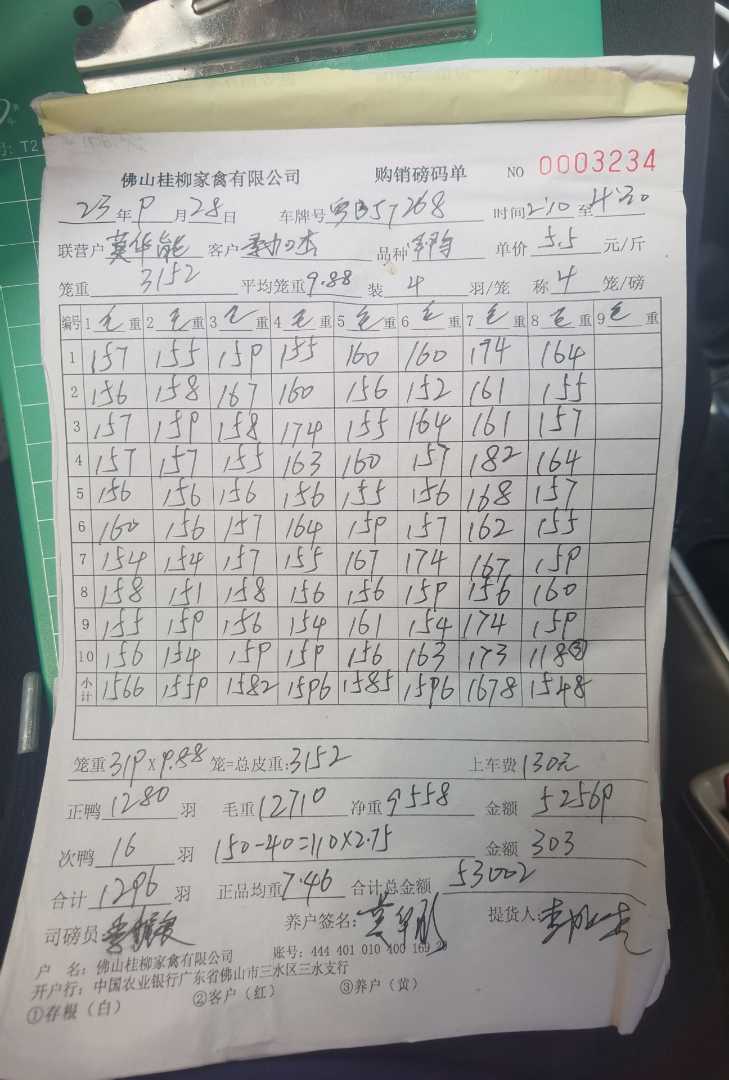 佛山桂柳家禽有限公司 购销磅码单 NO 0003234
23年9月28日 车牌号 57268 时间2:10至4:30
联营户 莫华能 客户 品种 单价 5.5 元/斤
笼重 3152 平均笼重9.88 装 4 羽/笼 称 4 笼/磅
编号 1毛重 2毛重 3毛重 4毛重 5毛重 6毛重 7毛重 8毛重 9毛重
1 157 155 159 155 160 160 174 164
2 156 158 167 160 156 152 161 155
3 157 159 158 174 155 164 161 157
4 157 157 155 163 160 157 182 164
5 156 156 156 156 155 156 168 157
6 160 156 157 164 159 157 162 155
7 154 154 157 155 167 174 167 159
8 158 151 158 156 156 159 156 160
9 155 159 156 154 161 154 174 159
10 156 154 159 159 156 163 173 118③
小计 1566 1559 1582 1596 1585 1596 1678 1548
笼重319×9.88笼=总皮重:3152 上车费130元
正鸭1280羽 毛重12710净重9558 金额 52569
次鸭 16 羽 150-40=110×2.75 金额 303
合计1296羽 正品均重7.46 合计总金额 53002
司磅员 养户签名: 提货人:
户 名:佛山桂柳家禽有限公司 账号:444 401 010 400 169 29
开户行:中国农业银行广东省佛山市三水区三水支行
①存根(白) ②客户(红) ③养户(黄)